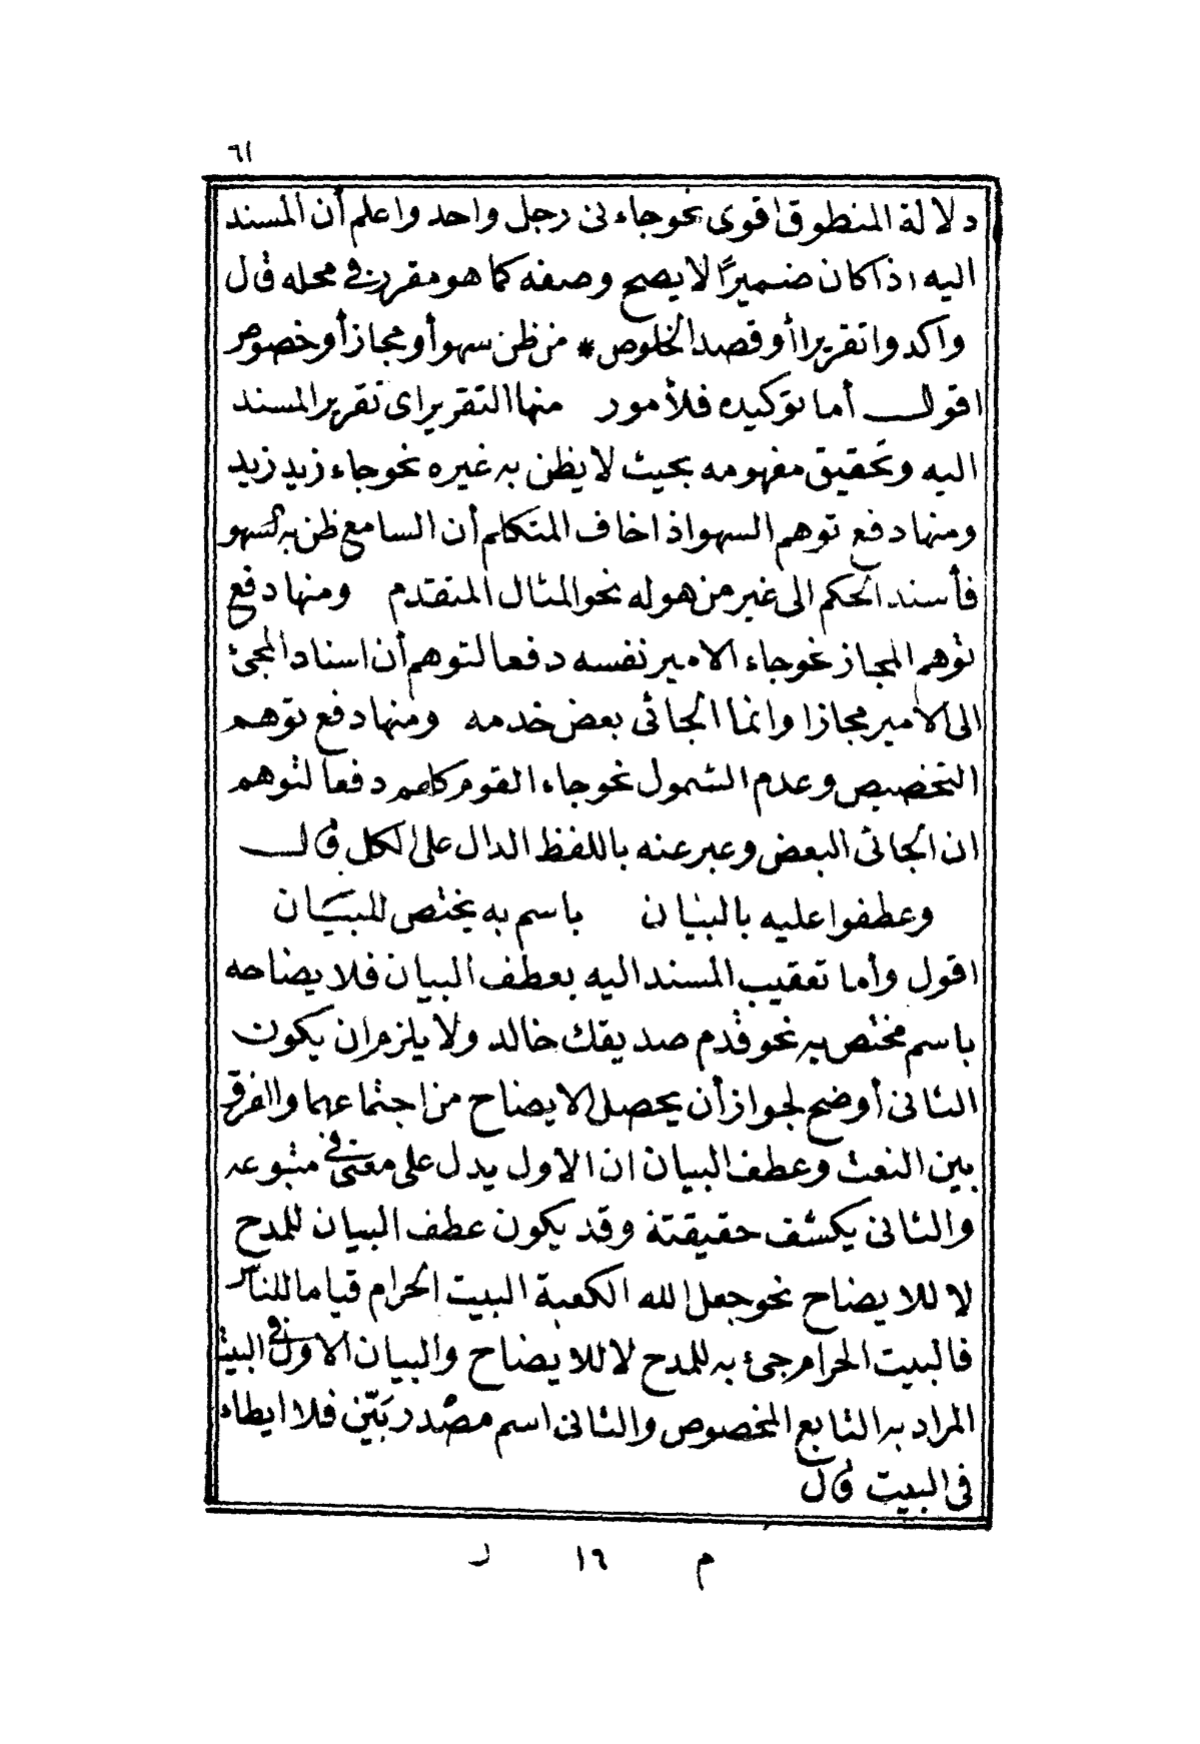 ٦١
دلالة المنطوق اقوى نحو جاءنى رجل واحد واعلم أن المسند
اليه اذا كان ضميرًا لا يصح وصفه كما هو مقرر فى محله قال
واكدوا تقريرا أو قصد الخلوص * من ظن سهو أو مجاز أو خصوص
اقول أما توكيده فلأمور منها التقرير اى تقرير المسند
اليه وتحقيق مفهومه بحيث لا يظن به غيره نحو جاء زيد زيد
ومنها دفع توهم السهو اذا خاف المتكلم أن السامع ظن به السهو
فأسند الحكم الى غير من هو له نحو المثال المتقدم ومنها دفع
توهم المجاز نحو جاء الامير نفسه دفعا لتوهم أن اسناد المجئ
الى الامير مجازا وانما الجائى بعض خدمه ومنها دفع توهم
التخصيص وعدم الشمول نحو جاء القوم كلهم دفعا لتوهم
ان الجائى البعض وعبر عنه باللفظ الدال على الكل قال
وعطفوا عليه بالبيان باسم به يختص للبيان
اقول وأما تعقيب المسند اليه بعطف البيان فلايضاحه
باسم مختص به نحو قدم صديقك خالد ولا يلزم ان يكون
الثانى أوضح لجواز أن يحصل الايضاح من اجتماعهما والفرق
بين النعت وعطف البيان ان الاول يدل على معنى فى متبوعه
والثانى يكشف حقيقتة وقد يكون عطف البيان للمدح
لا للايضاح نحو جعل الله الكعبة البيت الحرام قياما للناس
فالبيت الحرام جئ به للمدح لا للايضاح والبيان الاول فى البيت
المراد به التابع المخصوص والثانى اسم مصدر بَيّن فلا ايطاء
فى البيت قال
م ١٦ ل